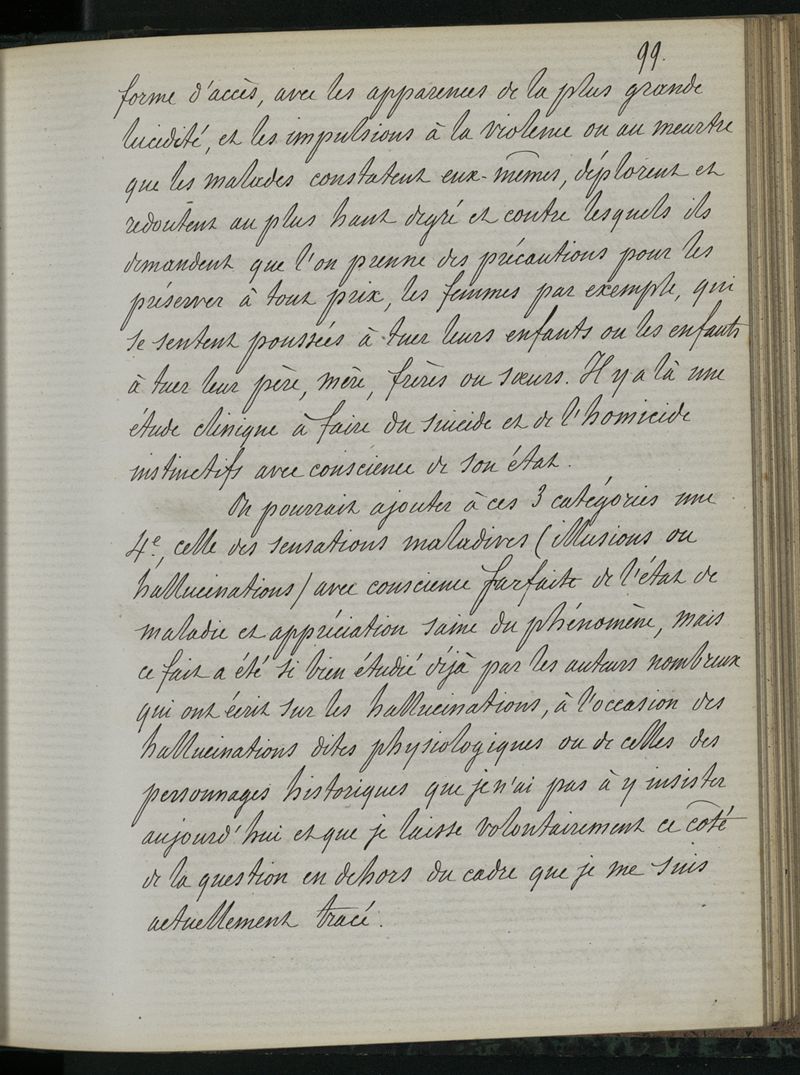 99.
forme d'accès, avec les apparences de la plus grande
lucidité, et les impulsions à la violence ou au meurtre
que les malades constatent eux-mêmes, déplorent et
redoutent au plus haut degré et contre lesquels ils
demandent que l'on prenne des précautions pour les
préserver à tout prix, les femmes par exemple, qui
se sentent poussées à tuer leurs enfants ou les enfants
à tuer leur père, mère, frères ou sœurs. Il y a là une
étude clinique à faire du suicide et de l'homicide
instinctifs avec conscience de son état.
On pourrait ajouter à ces 3 catégories une
4e, celle des sensations maladives (illusions ou
hallucinations) avec conscience parfaite de l'état de
maladie et appréciation saine du phénomène, mais
ce fait a été si bien étudié déjà par les auteurs nombreux
qui ont écrit sur les hallucinations, à l'occasion des
hallucinations dites physiologiques ou de celles des
personnages historiques que je n'ai pas à y insister
aujourd'hui et que je laisse volontairement ce côté
de la question en dehors du cadre que je me suis
actuellement tracé.